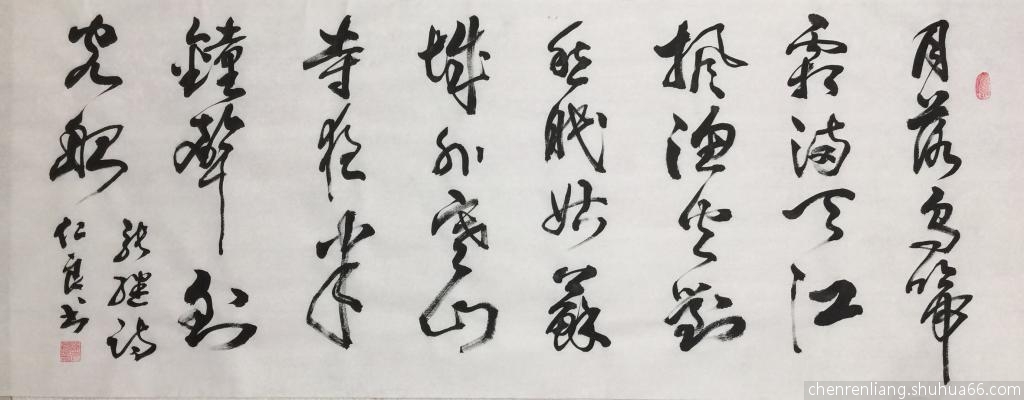 月落烏啼
霜满天江
楓漁火對
愁眠姑蘇
城外寒山
寺夜半
鐘聲到
客船
張繼詩
仁良书
chenrenliang.shuhua66.com